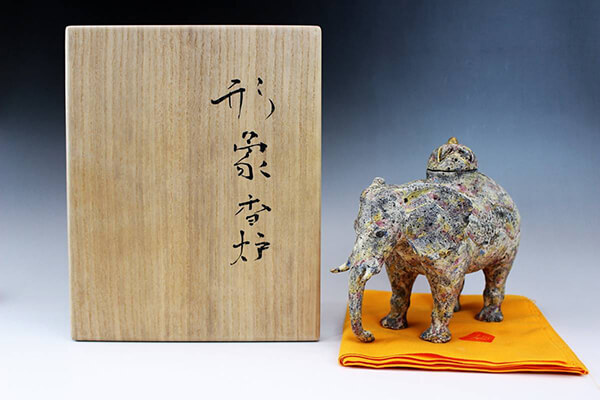 形象香炉